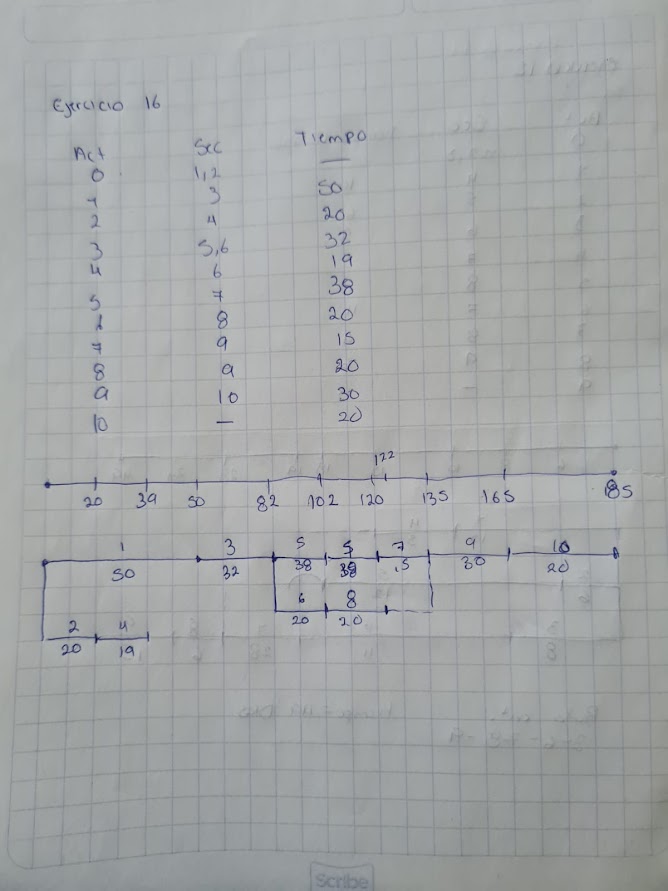 Ejercicio 16
Act Sec Tiempo
0 1,2 —
1 3 50
2 4 20
3 5,6 32
4 6 19
5 7 38
8 20
7 9 15
8 9 20
9 10 30
10 — 20
122
20 39 50 82 102 120 135 165 185
1 3 5 5 7 9 10
50 32 38 38 15 30 20
6 8
20 20
2 4
20 19
Scribe